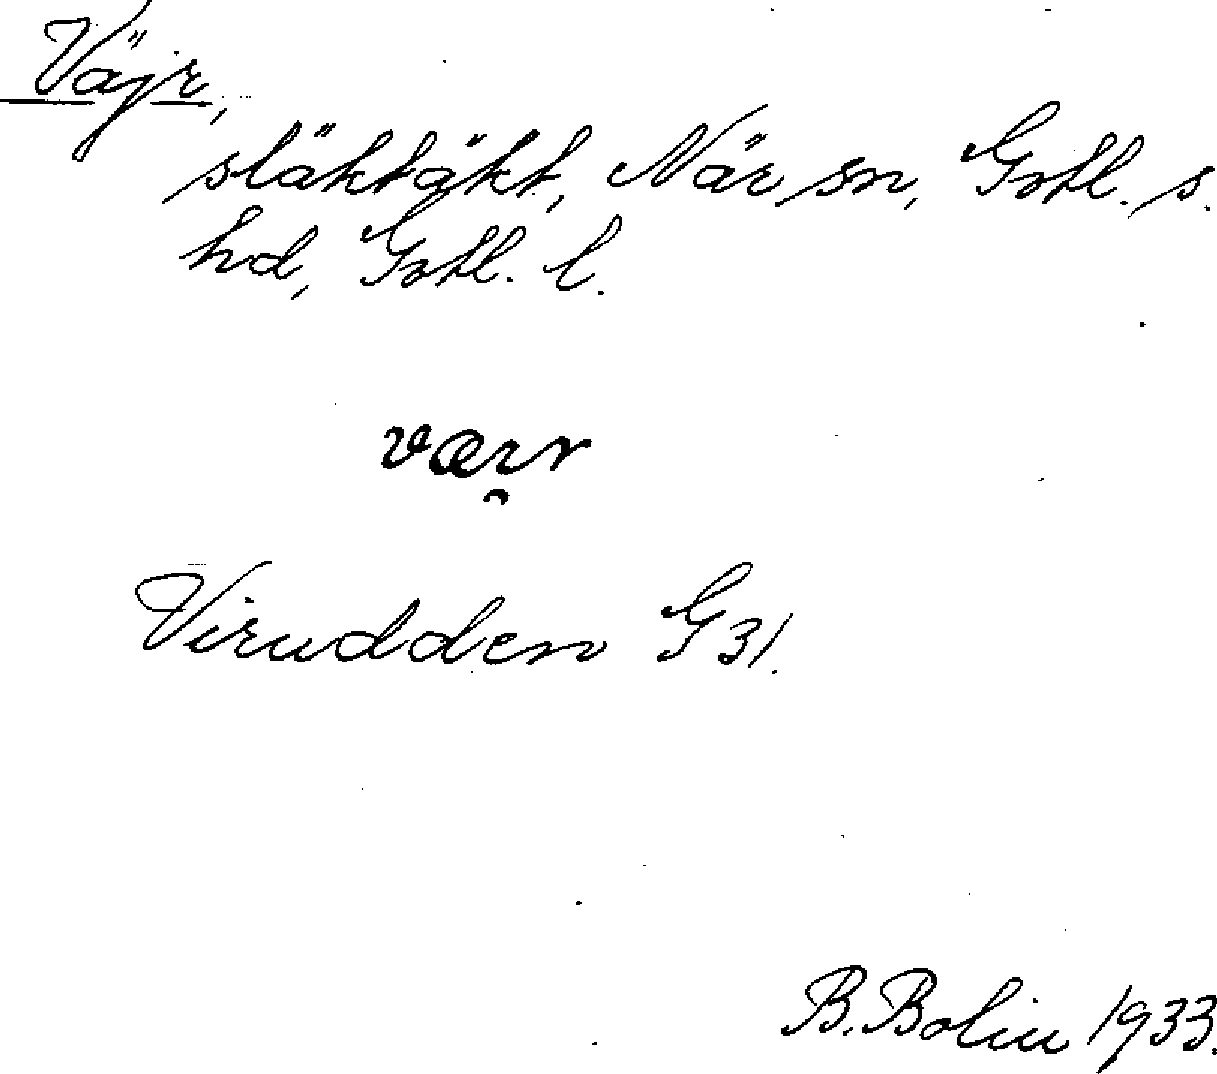 Väjr,
släktäkt, När sn, Gotl. s.
hd, Gotl. l.
Virudden G 31.
B. Bolin 1933.